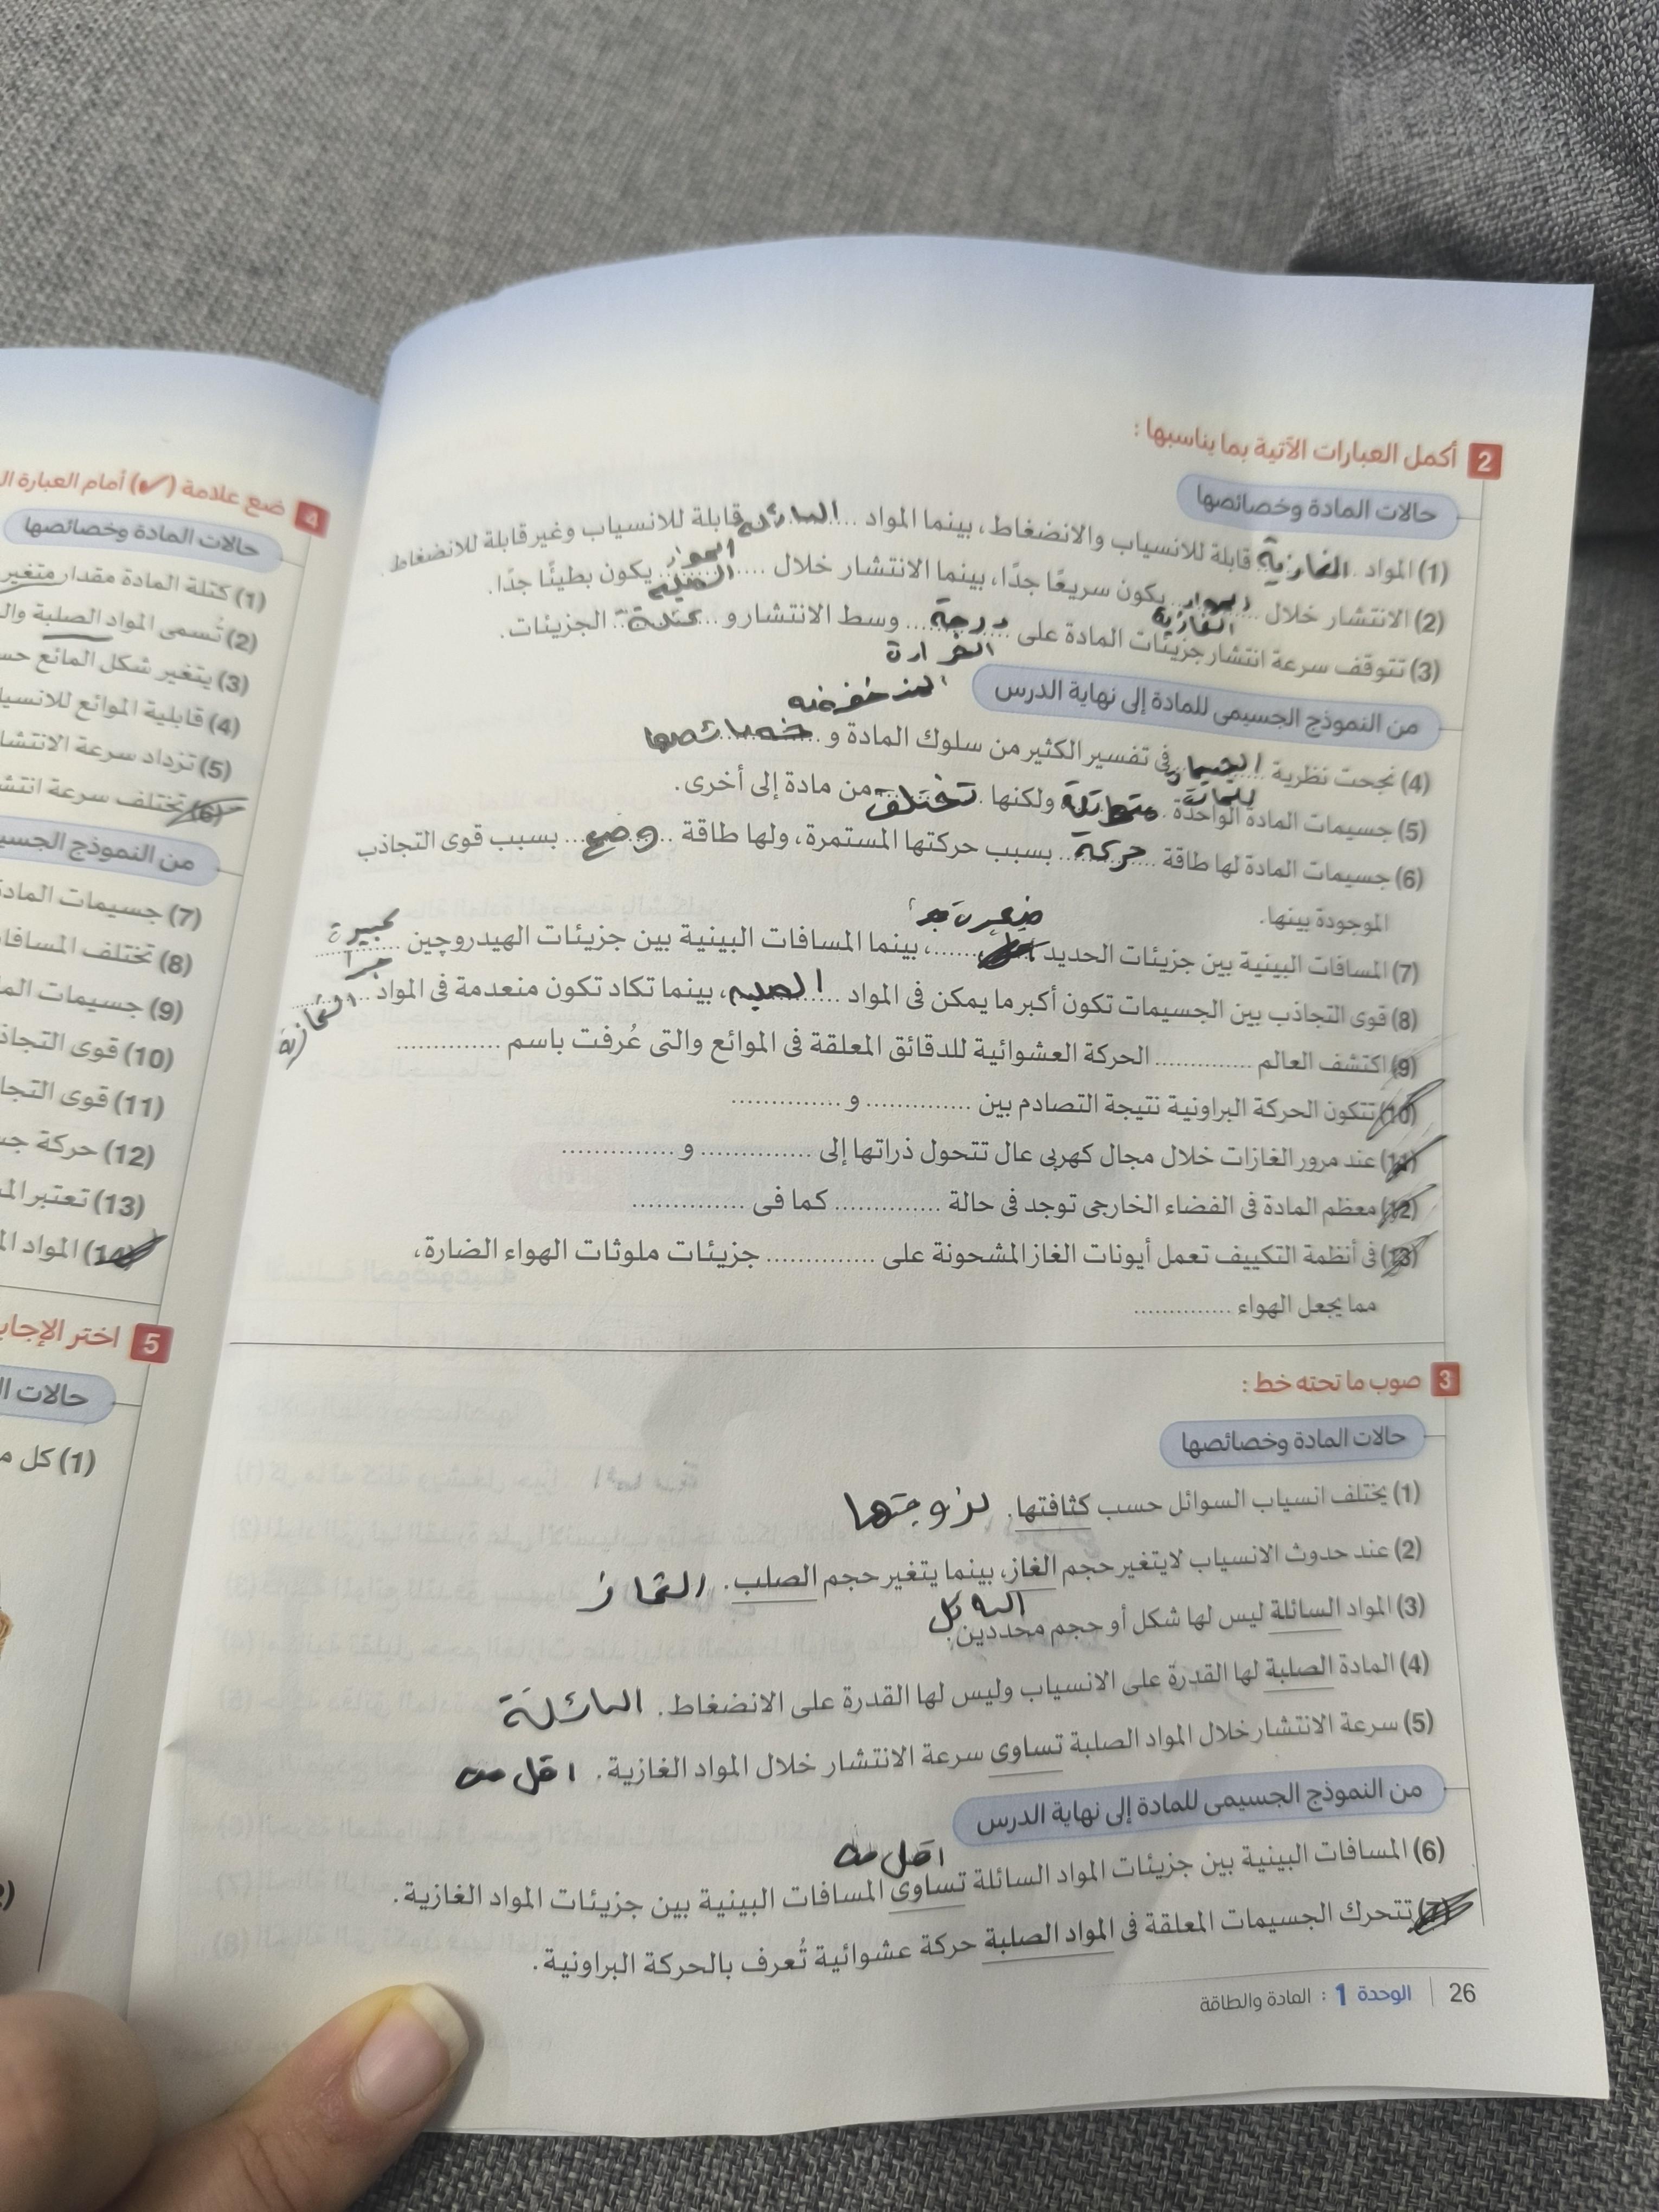 2 أكمل العبارات الآتية بما يناسبها :
حالات المادة وخصائصها
(1) المواد الغازية قابلة للانسياب والانضغاط، بينما المواد السائلة قابلة للانسياب وغير قابلة للانضغاط.
(2) الانتشار خلال المواد الغازية يكون سريعًا جدًا، بينما الانتشار خلال المواد الصلبه يكون بطيئًا جدًا.
(3) تتوقف سرعة انتشار جزيئات المادة على درجة الحرارة وسط الانتشار و كتلة الجزيئات.
من النموذج الجسيمى للمادة إلى نهاية الدرس
(4) نجحت نظرية فى تفسير الكثير من سلوك المادة و خصائصها
(5) جسيمات المادة الواحدة متماثلة ولكنها تختلف من مادة إلى أخرى.
(6) جسيمات المادة لها طاقة حركة بسبب حركتها المستمرة، ولها طاقة وضع بسبب قوى التجاذب
الموجودة بينها.
(7) المسافات البينية بين جزيئات الحديد صغيرة جدا، بينما المسافات البينية بين جزيئات الهيدروچين كبيرة جدا
(8) قوى التجاذب بين الجسيمات تكون أكبر ما يمكن فى المواد الصلبه، بينما تكاد تكون منعدمة فى المواد الغازية
(9) اكتشف العالم .............. الحركة العشوائية للدقائق المعلقة فى الموائع والتى عُرفت باسم ..............
(10) تتكون الحركة البراونية نتيجة التصادم بين .............. و ..............
(11) عند مرور الغازات خلال مجال كهربى عال تتحول ذراتها إلى .............. و ..............
(12) معظم المادة فى الفضاء الخارجى توجد فى حالة .............. كما فى ..............
(13) فى أنظمة التكييف تعمل أيونات الغاز المشحونة على .............. جزيئات ملوثات الهواء الضارة،
مما يجعل الهواء ..............
3 صوب ما تحته خط :
حالات المادة وخصائصها
(1) يختلف انسياب السوائل حسب كثافتها. لزوجتها
(2) عند حدوث الانسياب لايتغير حجم الغاز، بينما يتغير حجم الصلب. الغاز السائل
(3) المواد السائلة ليس لها شكل أو حجم محددين.
(4) المادة الصلبة لها القدرة على الانسياب وليس لها القدرة على الانضغاط. السائلة
(5) سرعة الانتشار خلال المواد الصلبة تساوى سرعة الانتشار خلال المواد الغازية. اقل من
من النموذج الجسيمى للمادة إلى نهاية الدرس
اقل من
(6) المسافات البينية بين جزيئات المواد السائلة تساوى المسافات البينية بين جزيئات المواد الغازية.
(7) تتحرك الجسيمات المعلقة فى المواد الصلبة حركة عشوائية تُعرف بالحركة البراونية.
26 | الوحدة 1 : المادة والطاقة
4 ضع علامة (✓) أمام العبارة
حالات المادة وخصائصها
(1) كتلة المادة مقدار متغير
(2) تُسمى المواد الصلبة
(3) يتغير شكل المائع
(4) قابلية الموائع
(5) تزداد سرعة
(6) تختلف سرعة
من النموذج
(7) جسيمات
(8) تختلف
(9) جسيمات
(10) قوى
(11) قوى
(12) حركة
(13) تعتبر
(14) المواد
5 اختر
حالات
(1) كل